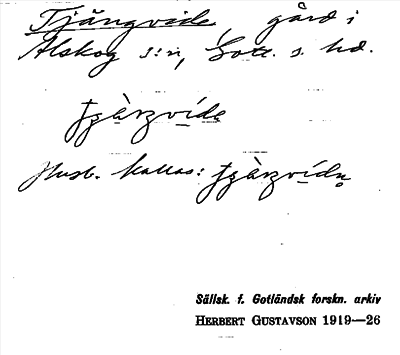 Tjängvide, gård i
Alskog s:n, Gotl. s. hd.
tjàṇvịdẹ
Husb. kallas:
Sällsk. f. Gotländsk forskn. arkiv
HERBERT GUSTAVSON 1919—26